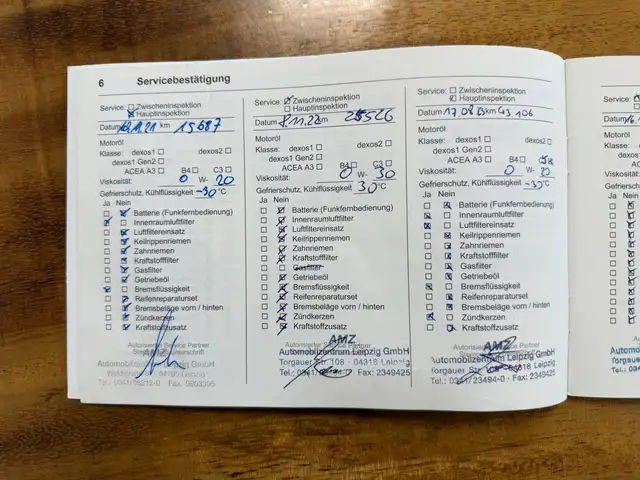 6 Servicebestätigung
Service: Zwischeninspektion
Hauptinspektion
Datum 15687 km
Motoröl
Klasse: dexos1 dexos2
dexos1 Gen2
ACEA A3 B4 C3
Viskosität: 0 W- 20
Gefrierschutz, Kühlflüssigkeit -30 °C
Ja Nein
Batterie (Funkfernbedienung)
Innenraumluftfilter
Luftfiltereinsatz
Keilrippenriemen
Zahnriemen
Kraftstofffilter
Gasfilter
Getriebeöl
Bremsflüssigkeit
Reifenreparaturset
Bremsbeläge vorn / hinten
Zündkerzen
Kraftstoffzusatz
Autorisierter Service Partner
Automobilzentrum Leipzig GmbH
04195 Leipzig
Tel.: 0341/ Fax:
Service: Zwischeninspektion
Hauptinspektion
Datum 8.11.22 km 25526
Motoröl
Klasse: dexos1 dexos2
dexos1 Gen2
ACEA A3 B4 C3
Viskosität: 0 W- 30
Gefrierschutz, Kühlflüssigkeit
30 °C
Ja Nein
Batterie (Funkfernbedienung)
Innenraumluftfilter
Luftfiltereinsatz
Keilrippenriemen
Zahnriemen
Kraftstofffilter
Gasfilter
Getriebeöl
Bremsflüssigkeit
Reifenreparaturset
Bremsbeläge vorn / hinten
Zündkerzen
Kraftstoffzusatz
AMZ
Autorisierter Service Partner
Automobilzentrum Leipzig GmbH
Torgauer Str. 108 - 04318 Leipzig
Tel.: 0341/ Fax: 2349425
Service: Zwischeninspektion
Hauptinspektion
Datum 17.08.23 km 43 106
Motoröl
Klasse: dexos1 dexos2
dexos1 Gen2
ACEA A3 B4
Viskosität: 0 W-
Gefrierschutz, Kühlflüssigkeit -30 °C
Ja Nein
Batterie (Funkfernbedienung)
Innenraumluftfilter
Luftfiltereinsatz
Keilrippenriemen
Zahnriemen
Kraftstofffilter
Gasfilter
Getriebeöl
Bremsflüssigkeit
Reifenreparaturset
Bremsbeläge vorn / hinten
Zündkerzen
Kraftstoffzusatz
Autorisierter Service Partner
AMZ
Automobilzentrum Leipzig GmbH
Torgauer Str. 04318 Leipzig
Tel.: 0341/ 23494-0 - Fax: 2349425